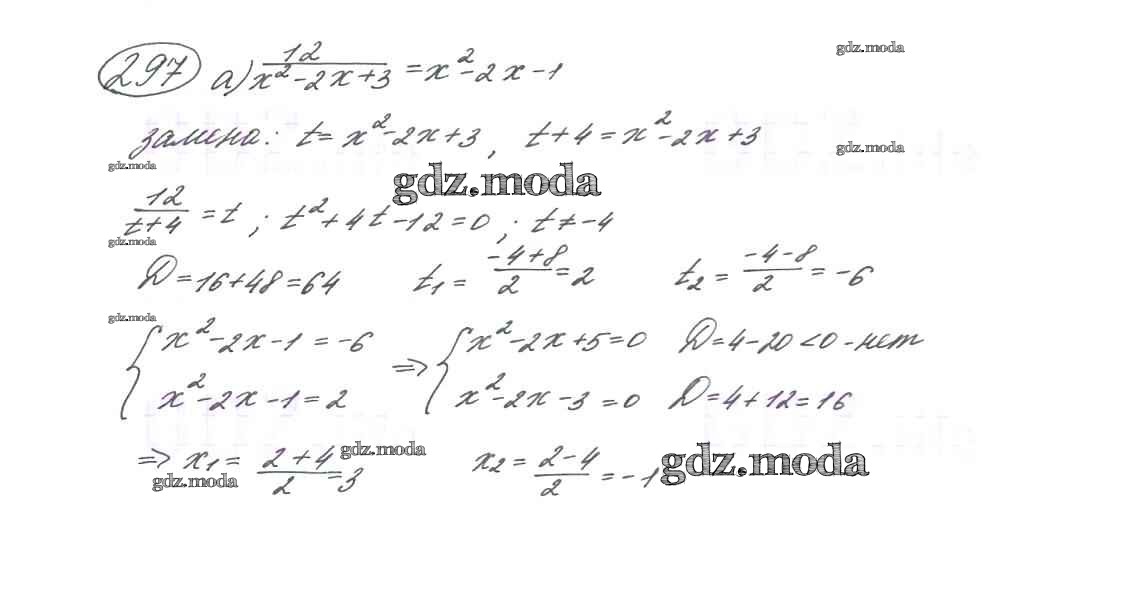 297 а) 12/(x²-2x+3) = x²-2x-1
gdz.moda
замена: t = x²-2x+3, t+4 = x²-2x+3
gdz.moda
gdz.moda
gdz.moda
12/(t+4) = t ; t²+4t-12=0 ; t≠-4
gdz.moda
D=16+48=64 t₁ = (-4+8)/2 = 2 t₂ = (-4-8)/2 = -6
gdz.moda
{ x²-2x-1 = -6 => { x²-2x+5=0 D=4-20<0-нет
x²-2x-1=2 x²-2x-3=0 D=4+12=16
=> x₁ = (2+4)/2 = 3 x₂ = (2-4)/2 = -1
gdz.moda
gdz.moda
gdz.moda